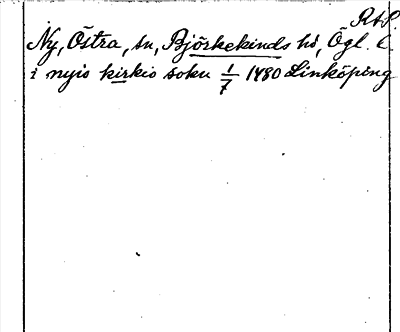 RAP.
Ny, Östra, sn, Björkekinds hd, Ögl. l.
i nyio kirkio soku 1/7 1480 Linköping